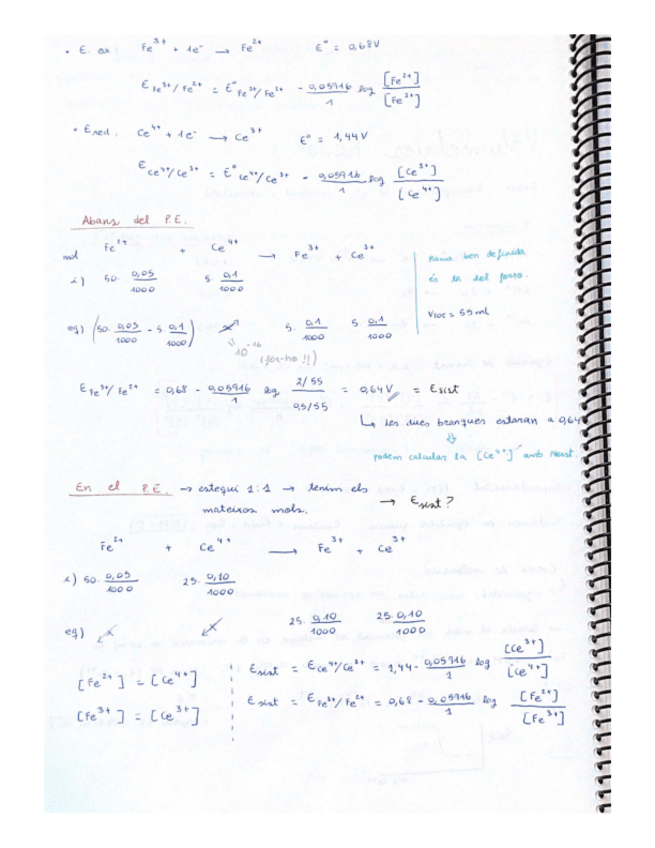 • E. ox: Fe³⁺ + 1e⁻ → Fe²⁺ E° = 0,68V
E Fe³⁺/Fe²⁺ = E° Fe³⁺/Fe²⁺ - 0,05916/1 log [Fe²⁺]/[Fe³⁺]
• Ered: Ce⁴⁺ + 1e⁻ → Ce³⁺ E° = 1,44V
E Ce⁴⁺/Ce³⁺ = E° Ce⁴⁺/Ce³⁺ - 0,05916/1 log [Ce³⁺]/[Ce⁴⁺]
Abans del P.E.
mol Fe²⁺ + Ce⁴⁺ → Fe³⁺ + Ce³⁺
i) 50· 0,05/1000 5· 0,1/1000
Rama ben definida
és la del ferro.
Vtoc = 55 ml
eq) (50· 0,05/1000 - 5· 0,1/1000) 5· 0,1/1000 5· 0,1/1000
10⁻¹⁶
(fer-ho !!)
E Fe³⁺/Fe²⁺ = 0,68 - 0,05916/1 log 2/55 / 0,5/55 = 0,64V = Esist
↳ les dues branques estaran a 0,64
⇓
podem calcular la [Ce⁴⁺] amb Nernst.
En el P.E. → estequi 1:1 → tenim els
mateixos mols. → Esist?
Fe²⁺ + Ce⁴⁺ → Fe³⁺ + Ce³⁺
i) 50· 0,05/1000 25· 0,10/1000
eq) 25· 0,10/1000 25· 0,10/1000
[Fe²⁺] = [Ce⁴⁺]
[Fe³⁺] = [Ce³⁺]
Esist = E Ce⁴⁺/Ce³⁺ = 1,44 - 0,05916/1 log [Ce³⁺]/[Ce⁴⁺]
Esist = E Fe³⁺/Fe²⁺ = 0,68 - 0,05916/1 log [Fe²⁺]/[Fe³⁺]